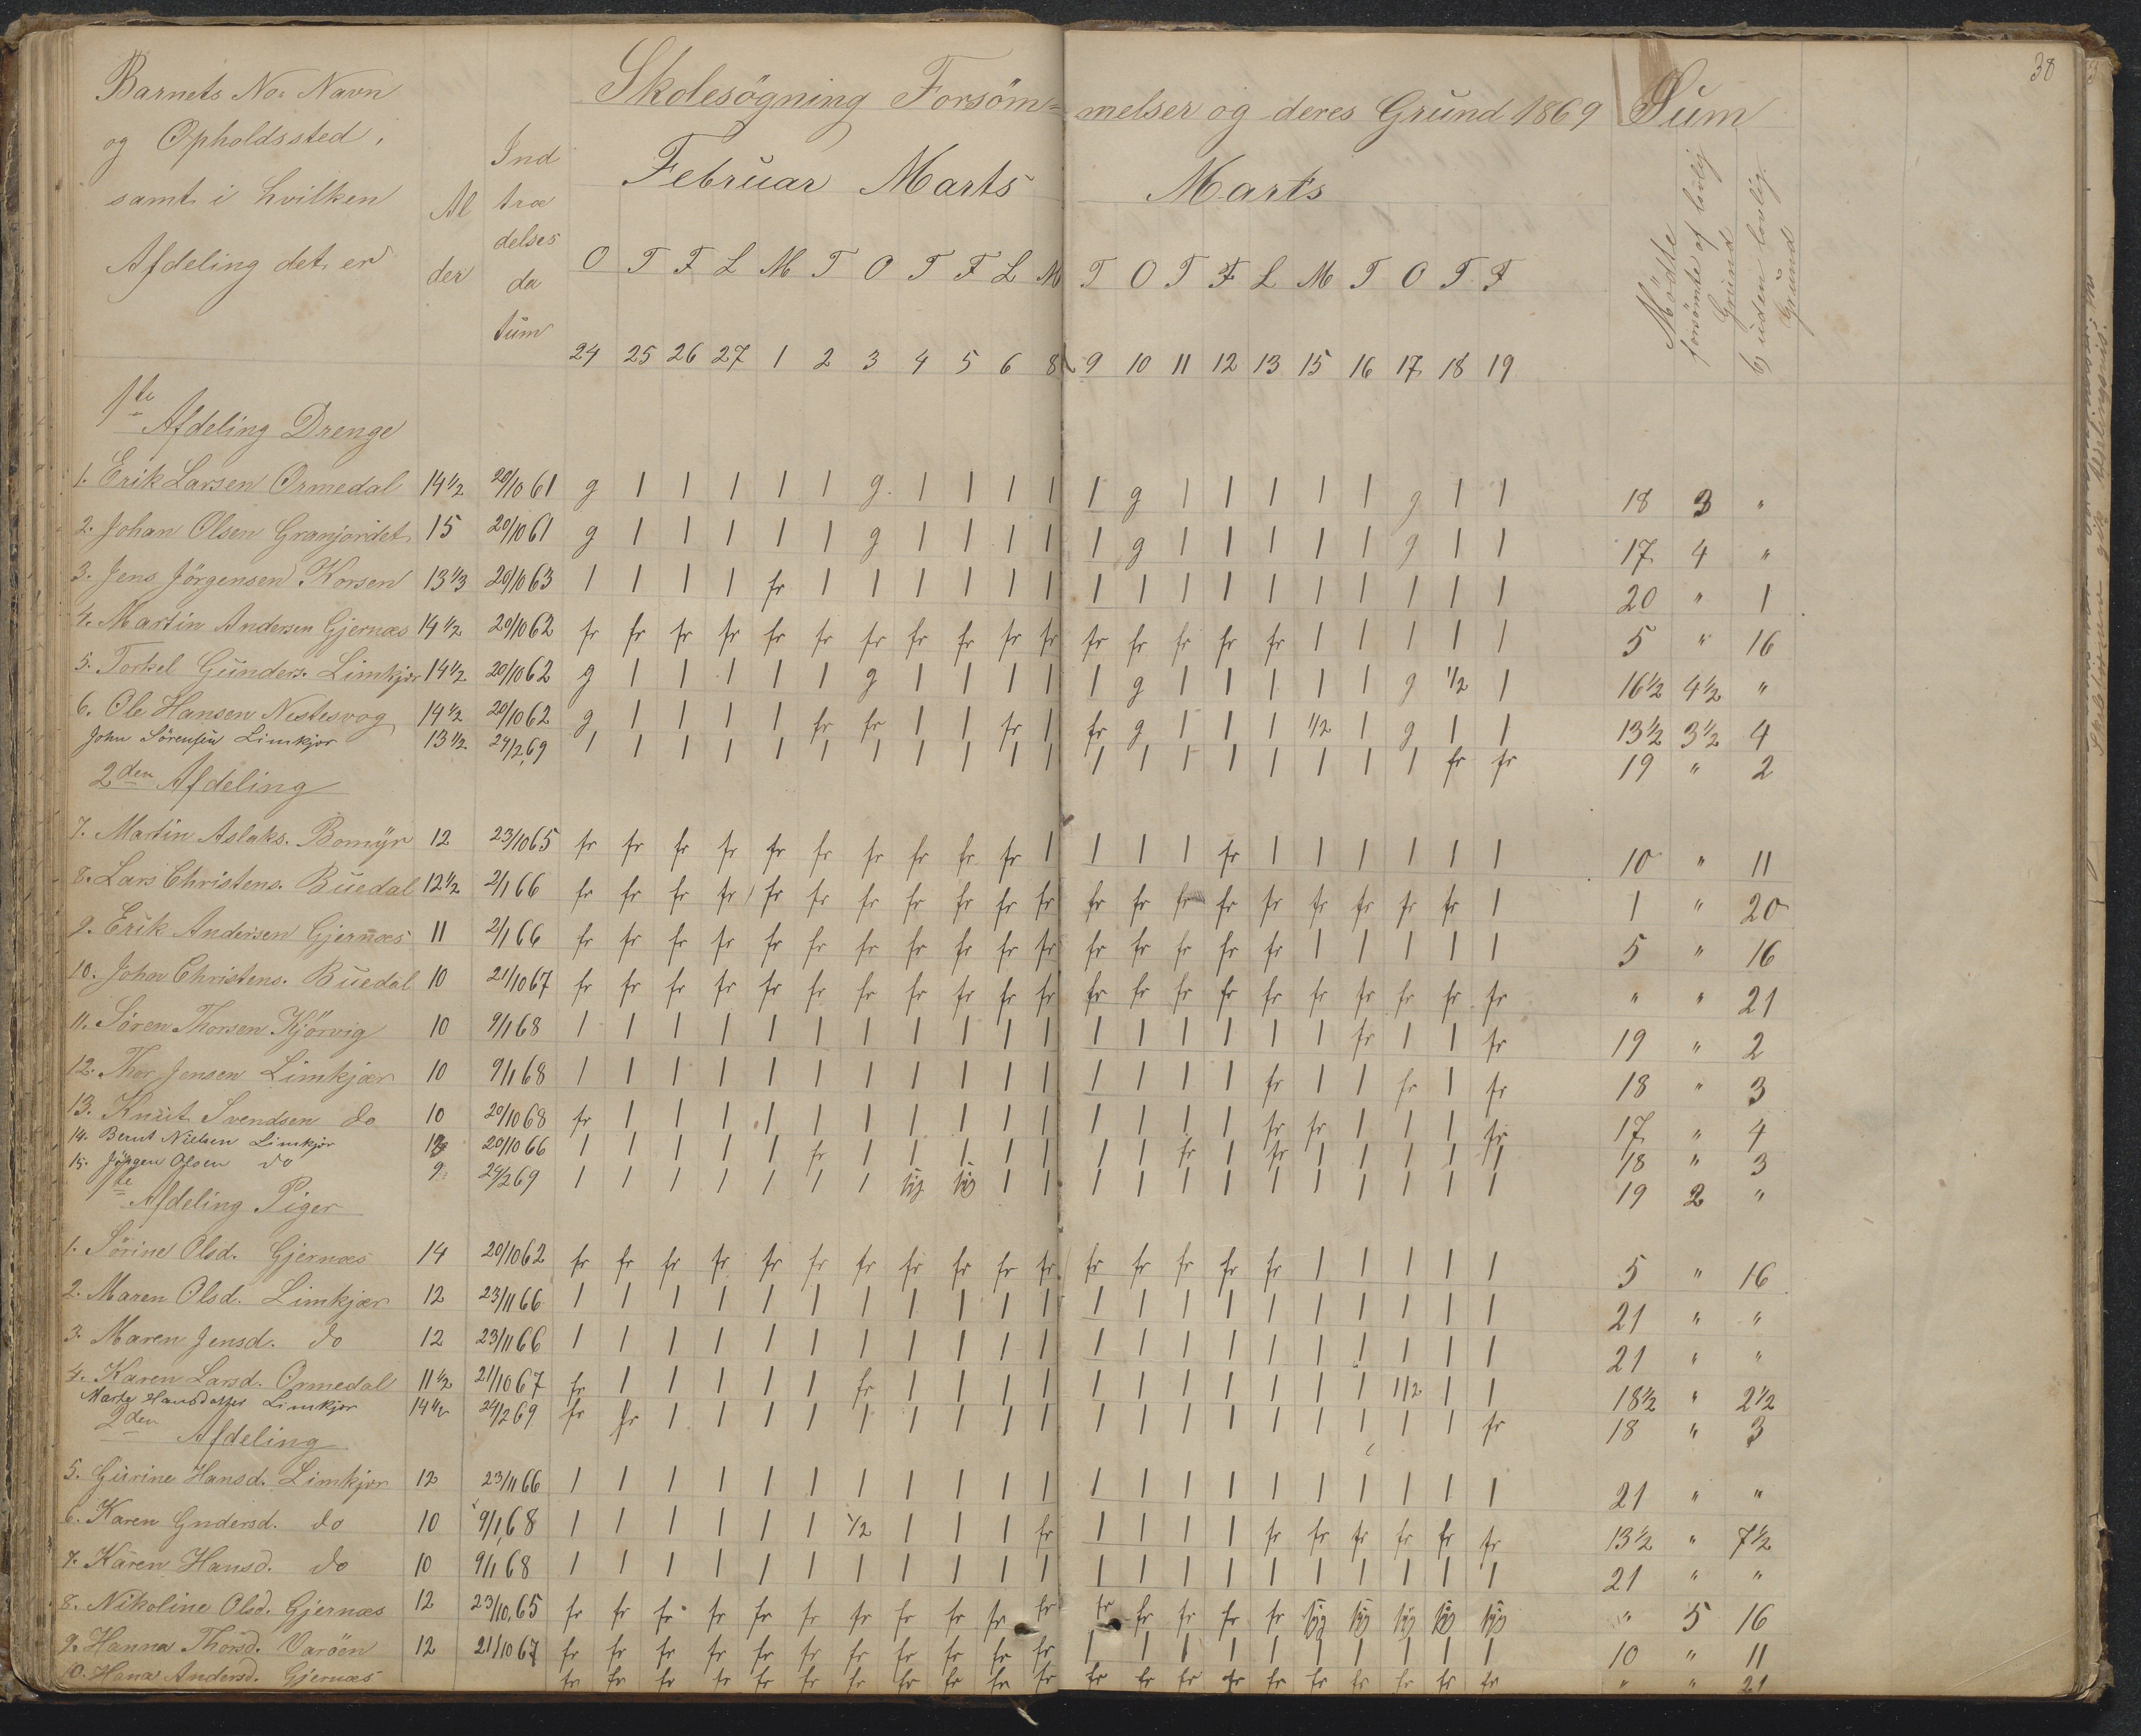 38
Barnets No. Navn
og Opholdssted,
samt i hvilken
Afdeling det er
Al
der
Ind
træ
delses
da
tum
Skolesögning Forsöm=
melser og deres Grund 1869
Sum
Februar Marts
Marts
Mödte
forsömte af lovlig Grund
b) uden lovlig Grund
O T F L M T O T F L M T O T F L M T O T F
24 25 26 27 1 2 3 4 5 6 8 9 10 11 12 13 15 16 17 18 19
1te Afdeling Drenge
1. Erik Larsen Ormedal 14 1/2 20/10 61 g 1 1 1 1 1 g 1 1 1 1 1 g 1 1 1 1 1 g 1 1 18 3 "
2. Johan Olsen Granjordet 15 20/10 61 g 1 1 1 1 1 g 1 1 1 1 1 g 1 1 1 1 1 g 1 1 17 4 "
3. Jens Jörgensen Korsen 13 1/3 20/10 63 1 1 1 1 fr 1 1 1 1 1 1 1 1 1 1 1 1 1 1 1 1 20 " 1
4. Martin Andersen Gjernæs 14 1/2 20/10 62 fr fr fr fr fr fr fr fr fr fr fr fr fr fr fr fr 1 1 1 1 1 5 " 16
5. Torkel Gunders. Limkjær 14 1/2 20/10 62 g 1 1 1 1 1 g 1 1 1 1 1 g 1 1 1 1 1 g 1/2 1 16 1/2 4 1/2 "
6. Ole Hansen Nestesvog 14 1/2 20/10 62 g 1 1 1 1 fr fr 1 1 fr 1 fr g 1 1 1 1/2 1 g 1 1 13 1/2 3 1/2 4
John Sörensen Limkjær 13 1/2 24/2 69 1 1 1 1 1 1 1 1 1 1 1 1 1 1 1 1 1 1 1 fr fr 19 " 2
2den Afdeling
7. Martin Aslaks. Bomyr 12 23/10 65 fr fr fr fr fr fr fr fr fr fr 1 1 1 1 fr 1 1 1 1 1 1 10 " 11
8. Lars Christens. Buedal 12 1/2 2/1 66 fr fr fr fr fr fr fr fr fr fr fr fr fr fr fr fr fr fr fr fr 1 1 " 20
9. Erik Andersen Gjernæs 11 2/1 66 fr fr fr fr fr fr fr fr fr fr fr fr fr fr fr fr 1 1 1 1 1 5 " 16
10. John Christens. Buedal 10 21/10 67 fr fr fr fr fr fr fr fr fr fr fr fr fr fr fr fr fr fr fr fr fr " " 21
11. Sören Thorsen Kjörvig 10 9/1 68 1 1 1 1 1 1 1 1 1 1 1 1 1 1 1 1 1 fr 1 1 fr 19 " 2
12. Thor Jensen Limkjær 10 9/1 68 1 1 1 1 1 1 1 1 1 1 1 1 1 1 1 fr 1 1 fr 1 fr 18 " 3
13. Knut Svendsen do 10 20/10 68 fr 1 1 1 1 1 1 1 1 1 1 1 1 1 1 fr fr 1 1 1 fr 17 " 4
14. Bernt Nielsen Limkjær 20/10 66 1 1 1 1 1 fr 1 1 1 1 1 1 1 fr 1 fr 1 1 1 1 1 18 " 3
15. Jörgen Olsen do 9 24/2 69 1 1 1 1 1 1 1 syg syg 1 1 1 1 1 1 1 1 1 1 1 1 19 2 "
1te Afdeling Piger
1. Sörine Olsd. Gjernæs 14 20/10 62 fr fr fr fr fr fr fr fr fr fr fr fr fr fr fr fr 1 1 1 1 1 5 " 16
2. Maren Olsd. Limkjær 12 23/11 66 1 1 1 1 1 1 1 1 1 1 1 1 1 1 1 1 1 1 1 1 1 21 " "
3. Maren Jensd. do 12 23/11 66 1 1 1 1 1 1 1 1 1 1 1 1 1 1 1 1 1 1 1 1 1 21 " "
4. Karen Larsd. Ormedal 11 1/2 21/10 67 fr 1 1 1 1 1 fr 1 1 1 1 1 1 1 1 1 1 1 1/2 1 1 18 1/2 " 2 1/2
Marte Hansdatter Limkjær 14 1/2 24/2 69 fr fr 1 1 1 1 1 1 1 1 1 1 1 1 1 1 1 1 1 1 fr 18 " 3
2den Afdeling
5. Gurine Hansd. Limkjær 12 23/11 66 1 1 1 1 1 1 1 1 1 1 1 1 1 1 1 1 1 1 1 1 1 21 " "
6. Karen Gndersd. do 10 9/1 68 1 1 1 1 1 1 1/2 1 1 1 fr 1 1 1 1 fr fr fr fr fr fr 13 1/2 " 7 1/2
7. Karen Hansd. do 10 9/1 68 1 1 1 1 1 1 1 1 1 1 1 1 1 1 1 1 1 1 1 1 1 21 " "
8. Nikoline Olsd. Gjernæs 12 23/10 65 fr fr fr fr fr fr fr fr fr fr fr fr fr fr fr fr syg syg syg syg syg " 5 16
9. Hanna Thorsd. Varöen 12 21/10 67 fr fr fr fr fr fr fr fr fr fr fr 1 1 1 1 1 1 1 1 1 1 10 " 11
10. Hana Andersd. Gjernæs fr fr fr fr fr fr fr fr fr fr fr fr fr fr fr fr fr fr fr fr fr " " 21